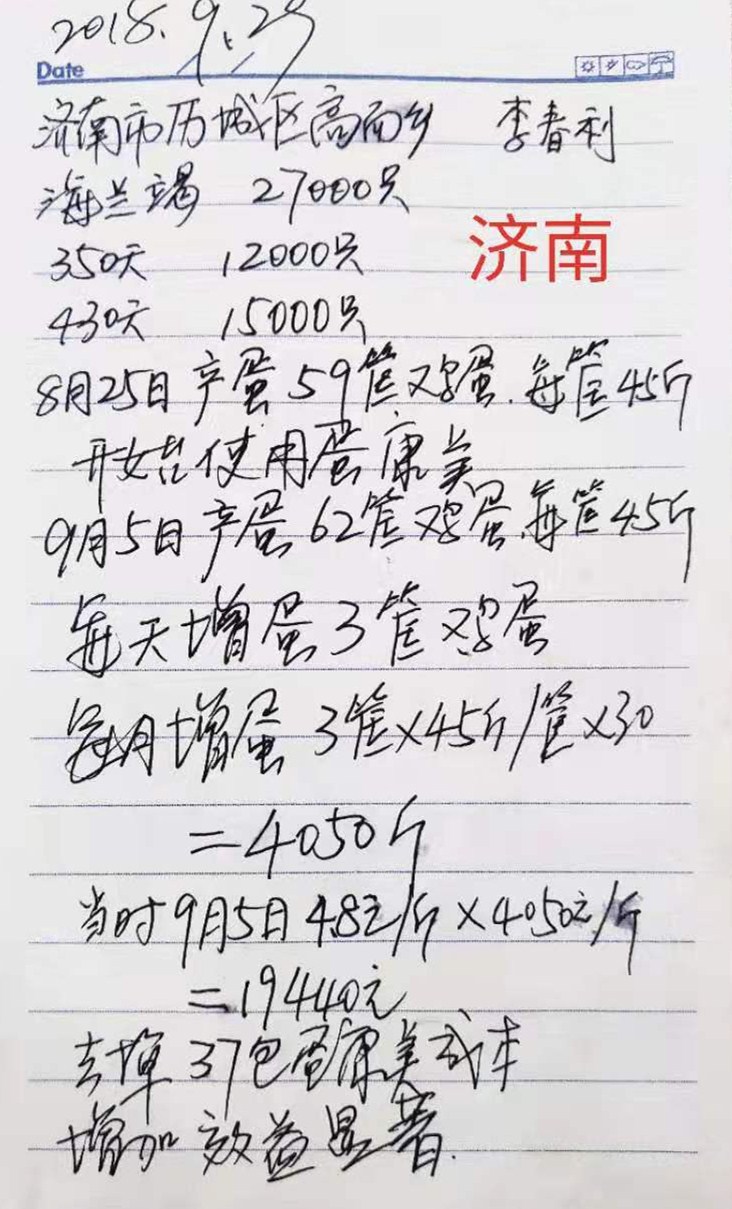 2018.9.25
Date
济南市历城区高而乡 李春利
海兰褐 27000只
济南
350天 12000只
430天 15000只
8月25日产蛋59筐鸡蛋.每筐45斤
开始使用蛋康美
9月5日产蛋62筐鸡蛋.每筐45斤
每天增蛋3筐鸡蛋
每月增蛋3筐×45斤/筐×30
=4050斤
当时9月5日4.8元/斤×4050元/斤
=19440元
去掉37包蛋康美成本
增加效益显著.